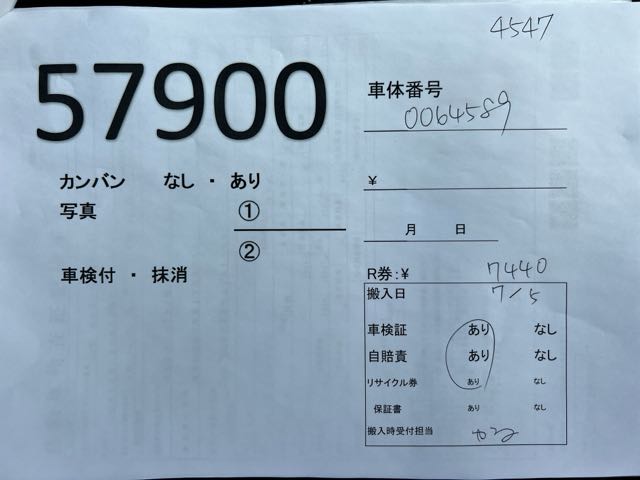 4547
57900
車体番号
0064589
カンバン なし ・ あり
¥
写真 ①
月 日
②
車検付 ・ 抹消
R券:¥ 7440
搬入日 7/5
車検証 あり なし
自賠責 あり なし
リサイクル券 あり なし
保証書 あり なし
搬入時受付担当